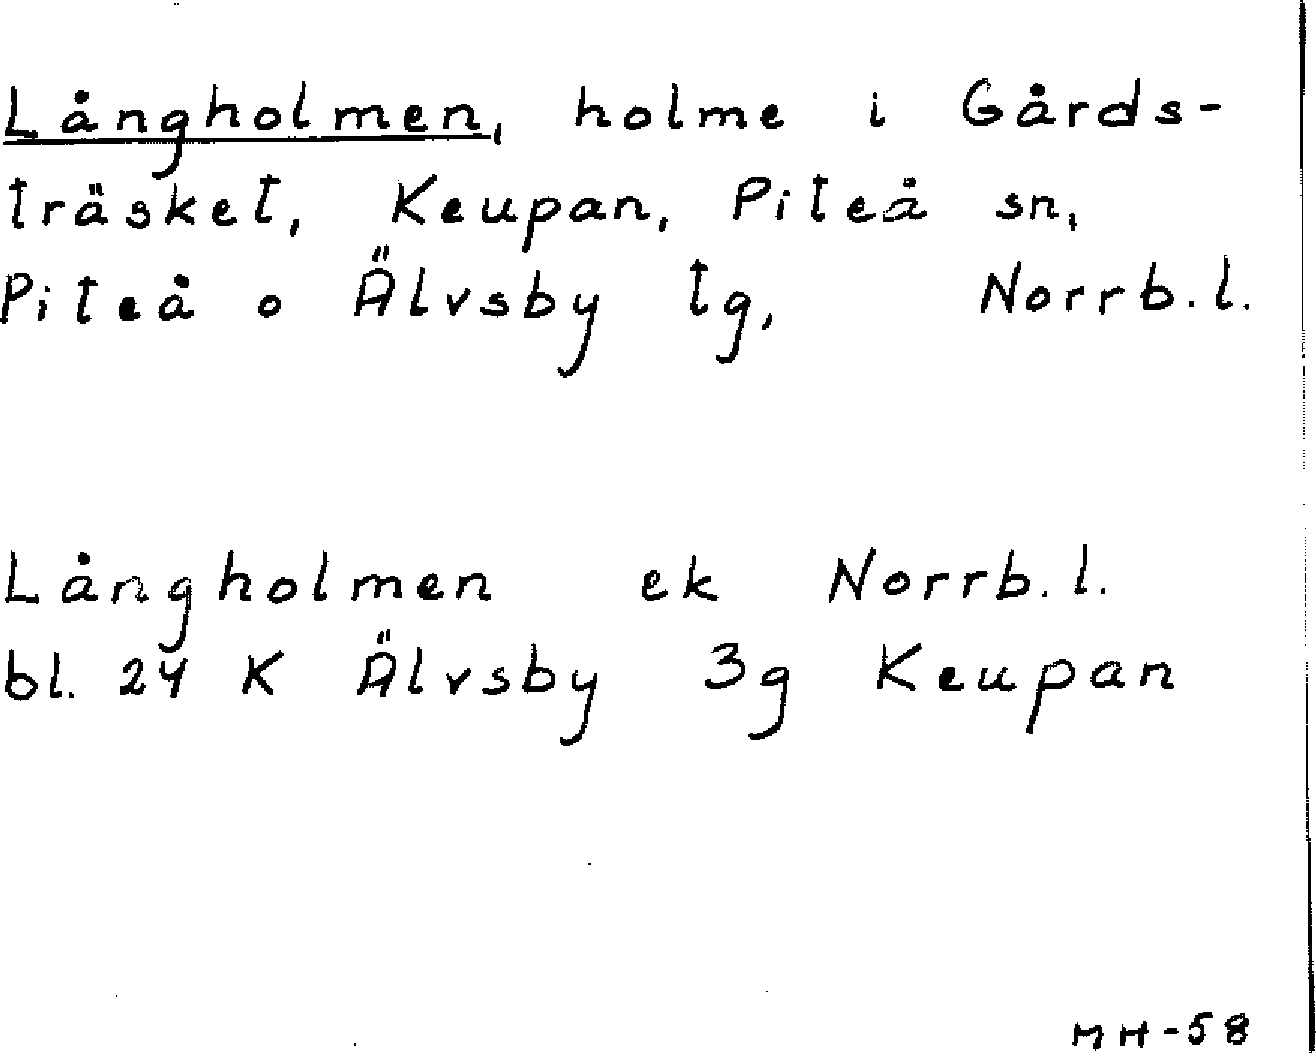 Långholmen, holme i Gårds-
träsket, Keupan, Piteå sn,
Piteå o Älvsby tg, Norrb.l.
Långholmen ek Norrb.l.
bl. 24 K Älvsby 3g Keupan
MH-58